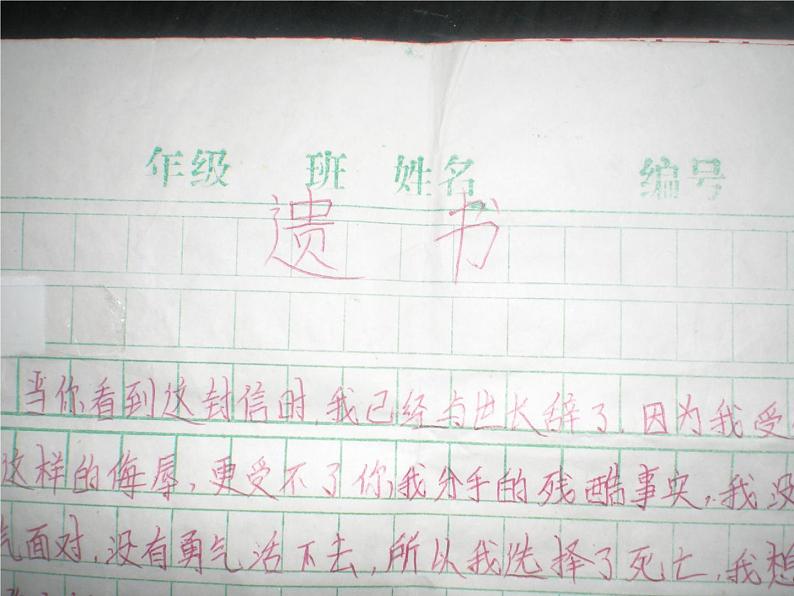 年级 班 姓名 编号
遗书
当你看到这封信时,我已经与世长辞了,因为我受
这样的侮辱,更受不了你,我分手的残酷事实,我没
气面对,没有勇气活下去,所以我选择了死亡,我想